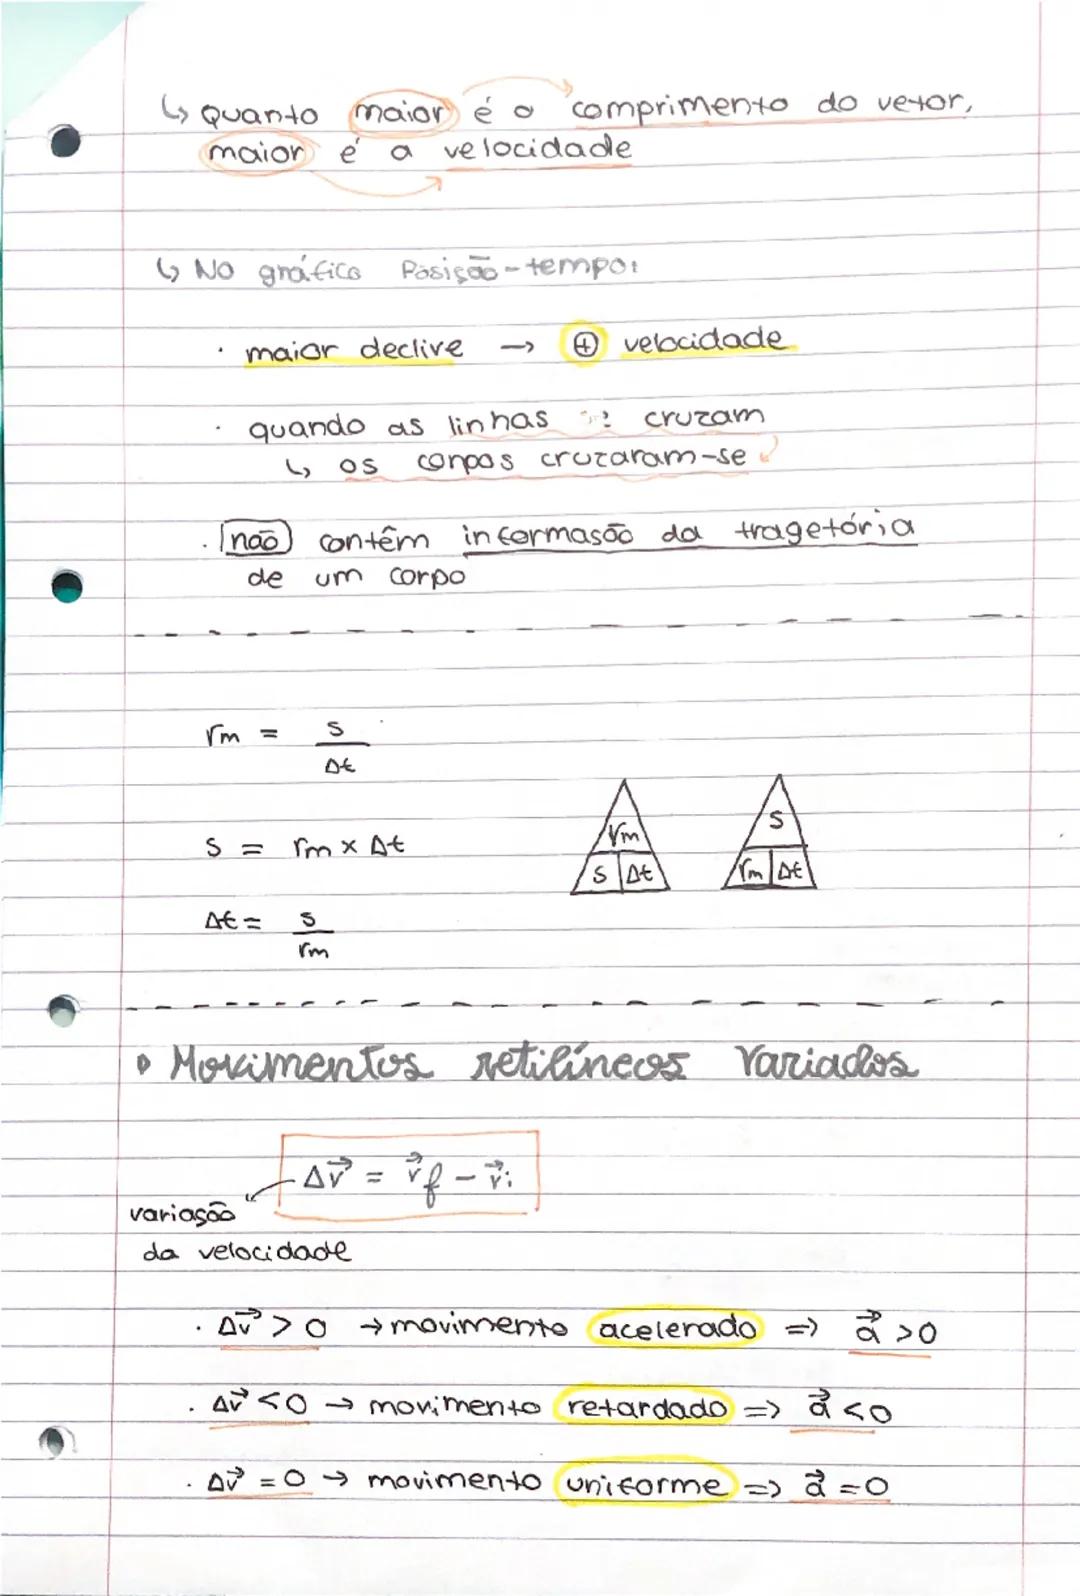 ↳ Quanto maior é o comprimento do vetor,
maior é a velocidade
↳ No gráfico Posição-tempo:
· maior declive → ⊕ velocidade
· quando as linhas cruzam
↳ os corpos cruzaram-se
· não contêm informasão da tragetória
de um corpo
rm = s
Δt
s = rm × Δt
rm
s Δt
s
rm Δt
Δt = s
rm
Movimentos retilíneos variados
Δv⃗ = v⃗f - v⃗i
variasão
da velocidade
· Δv⃗ > 0 → movimento acelerado => a⃗ > 0
· Δv⃗ < 0 → movimento retardado => a⃗ < 0
· Δv⃗ = 0 → movimento uniforme => a⃗ = 0